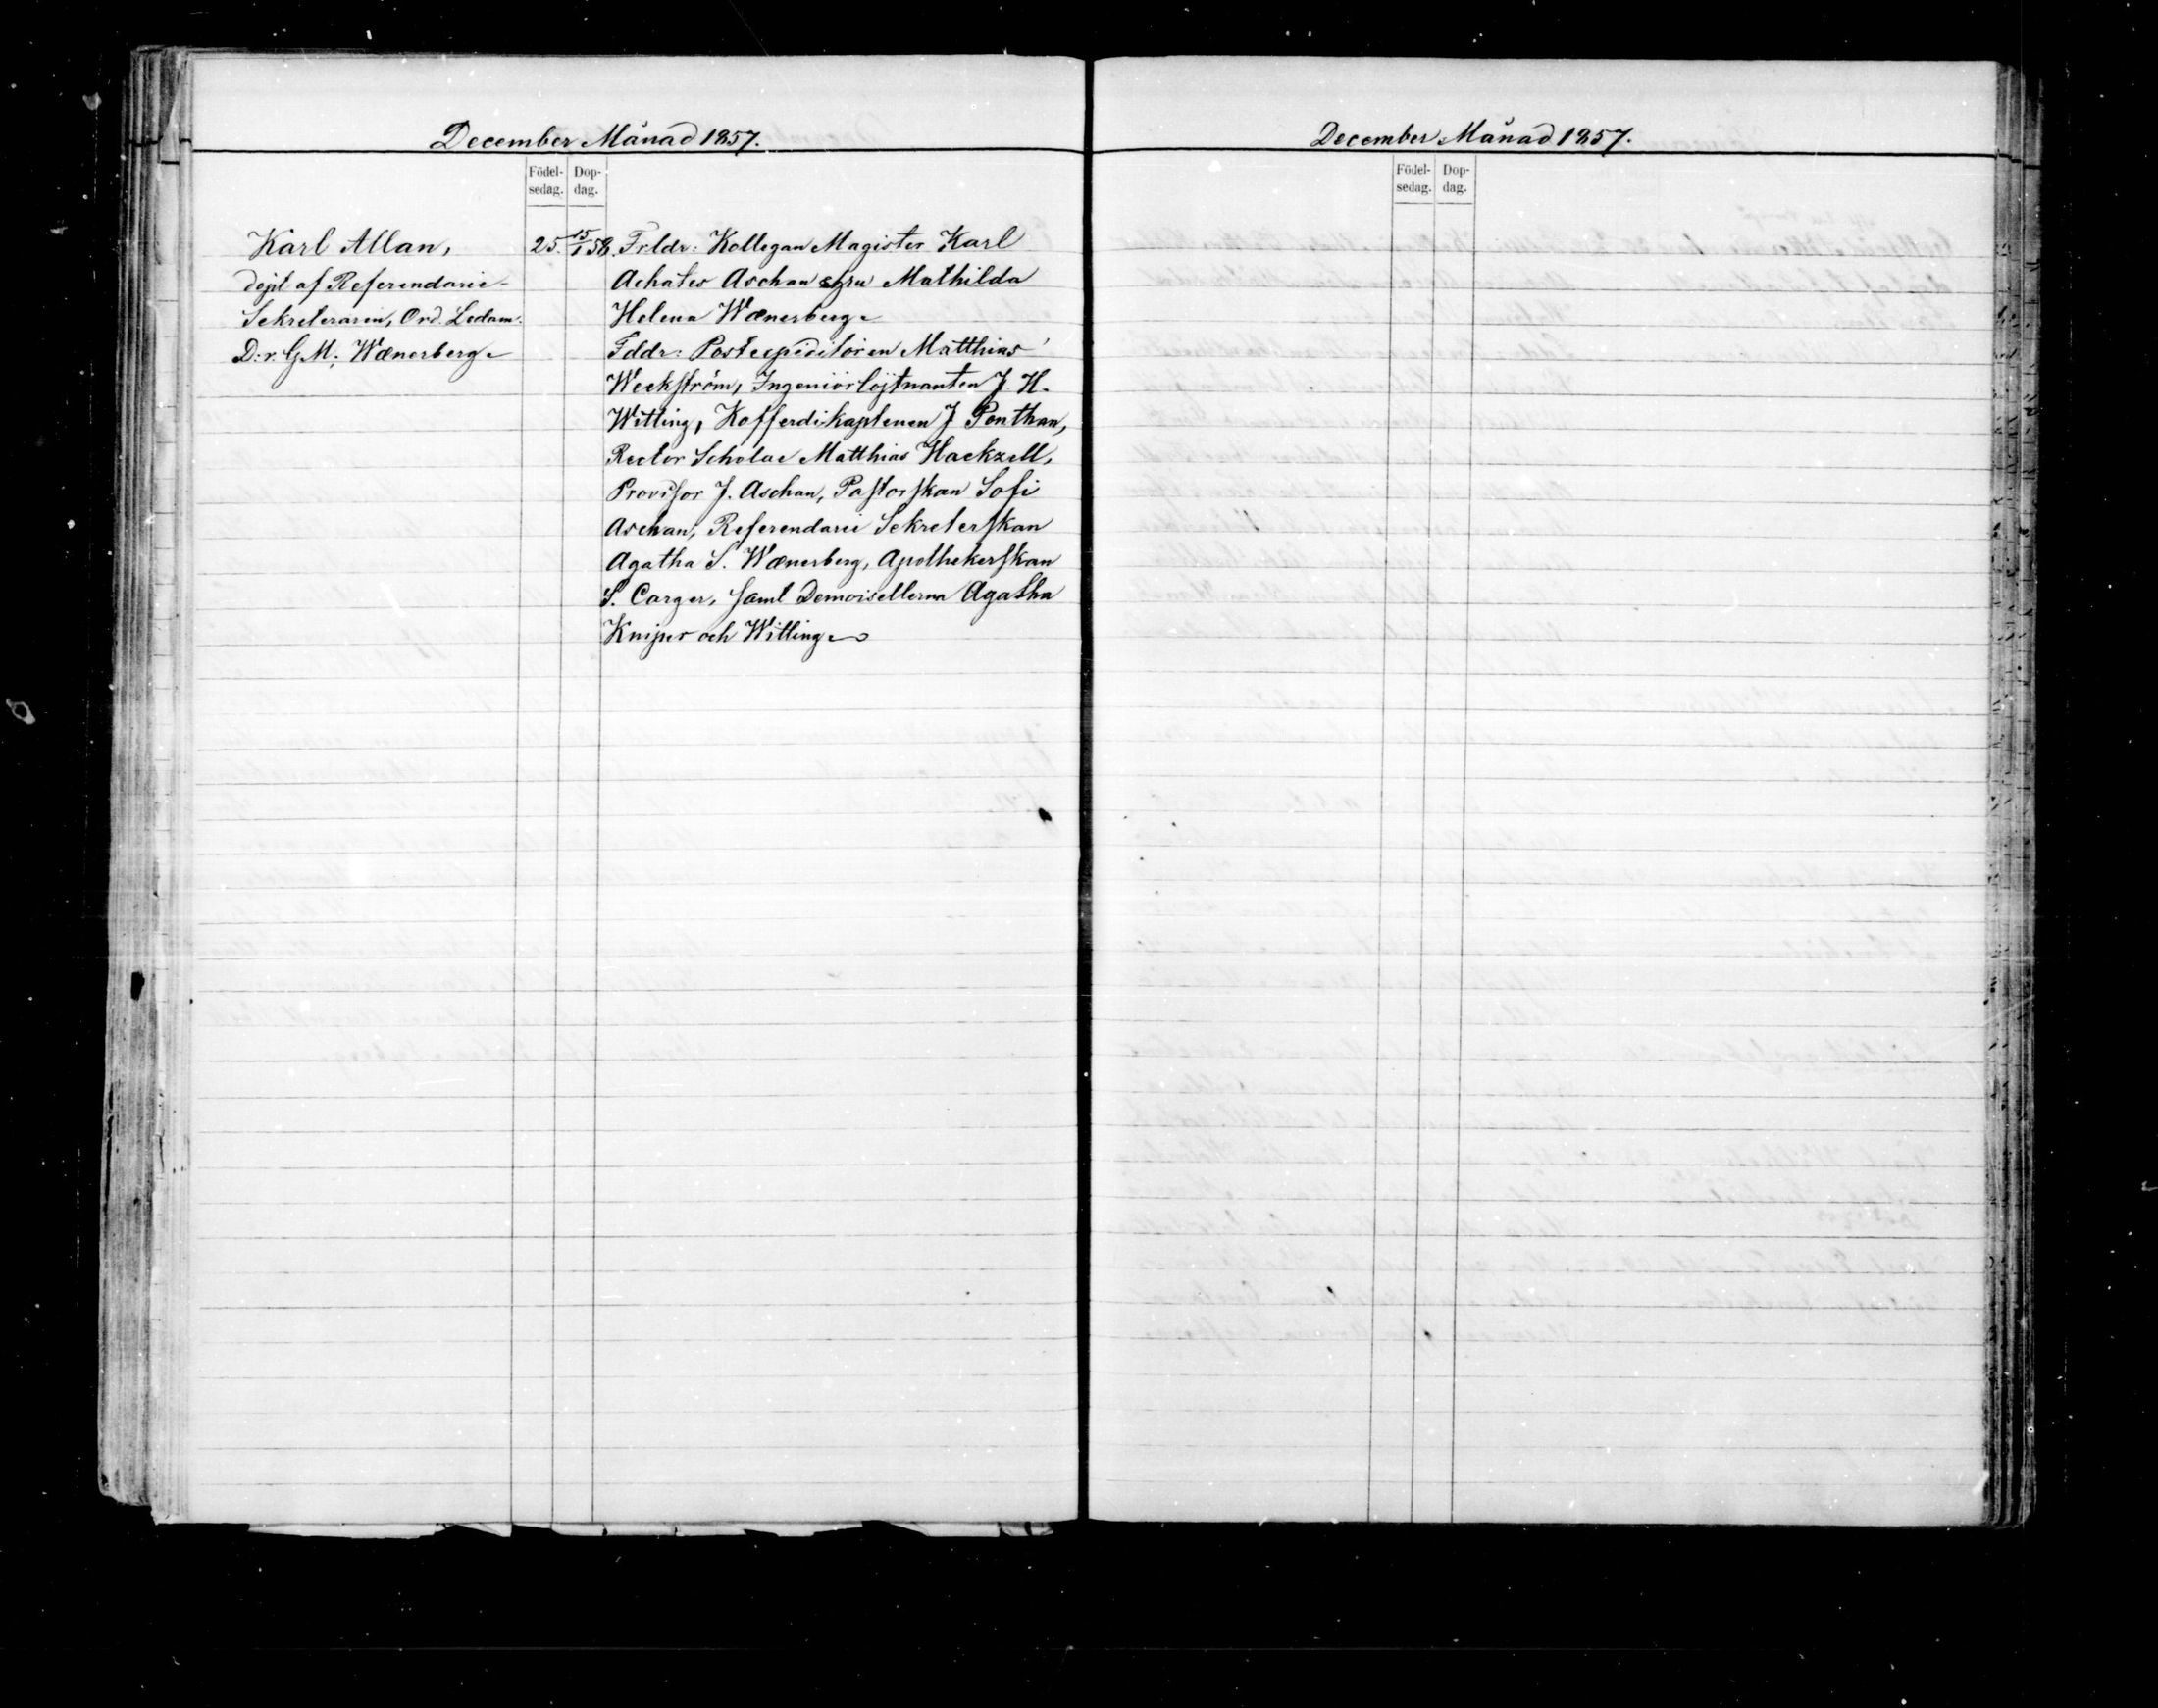 December Månad 1857.
Födel-
sedag.
Dop-
dag.
Karl Allan,
döpt af Referendarie-
Sekreteraren, Ord. Ledam.
D:r. G M: Wænerberg
25.
15/1 58.
Frldr: Kollegan Magister Karl
Achates Aschan Mathilda
Helena Wænerberg
Fddr: Postexpeditören Matthias
Weckström, Ingeniörlöjtnanten J. H.
Witting, Kofferdikaptenen J Ponthan,
Rector Scholae Matthias Hackzell,
Provisor J. Aschan, Pastorskan Sofi
Aschan, Referendarie Sekreterskan
Agatha S. Wænerberg, Apothekerskan
S. Carger, samt Demoisellerna Agatha
Kniper och Witting
December Månad 1857.
Födel-
sedag.
Dop-
dag.